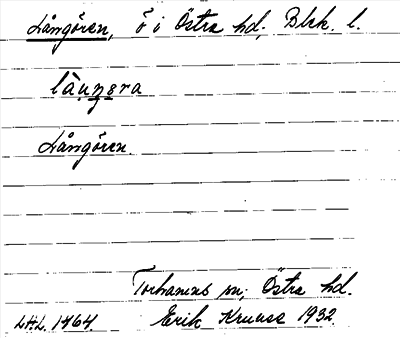 Långören, ö i Östra hd, Blek. l.
Långören
Torhamns sn, Östra hd.
LHL. 1464. Erik Kruuse 1932.